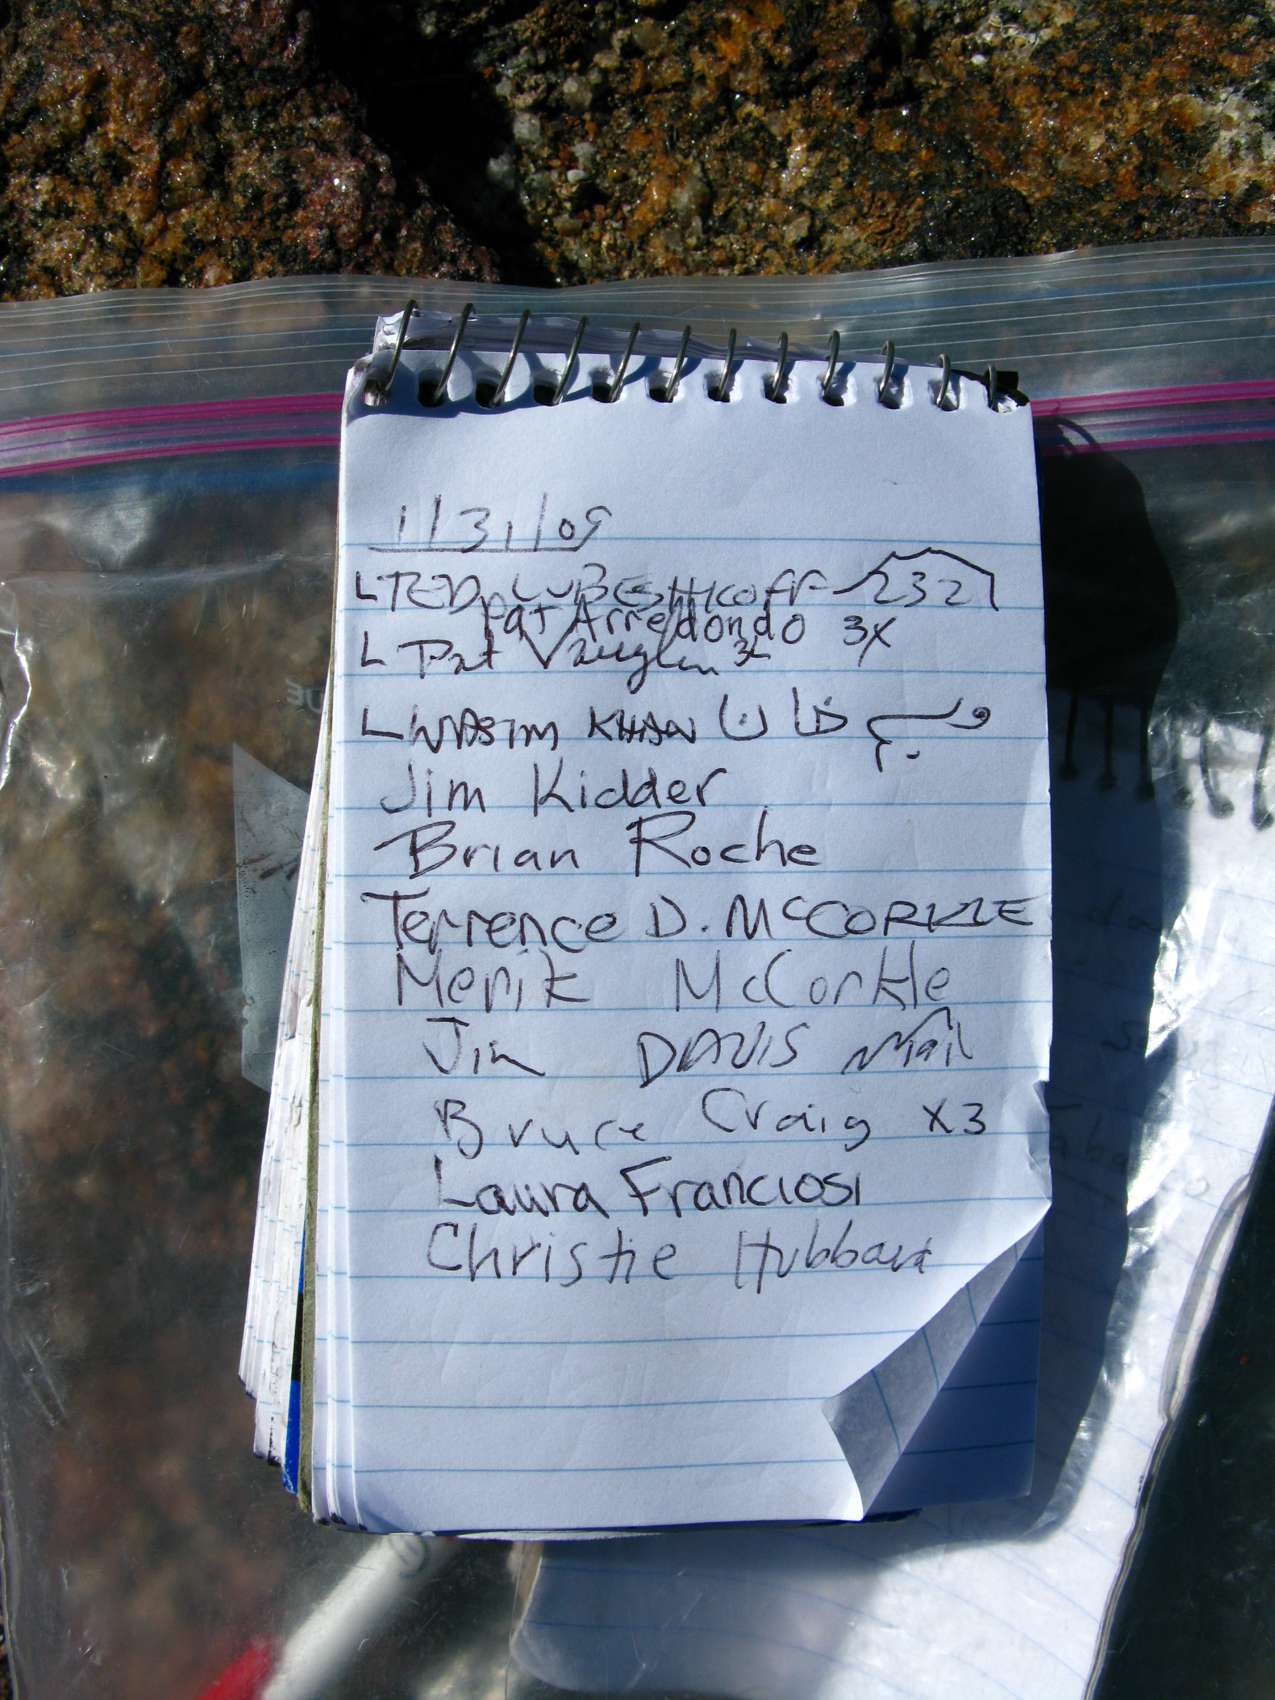 1/31/09
L TED LUBESHKOFF 232
Pat Arredondo 3X
L Pat Vaughn 3X
L WASIM KHAN وسیم خان
Jim Kidder
Brian Roche
Terrence D. McCORKLE
Merik McCorkle
Jim DAVIS
Bruce Craig x3
Laura Franciosi
Christie Hubbard